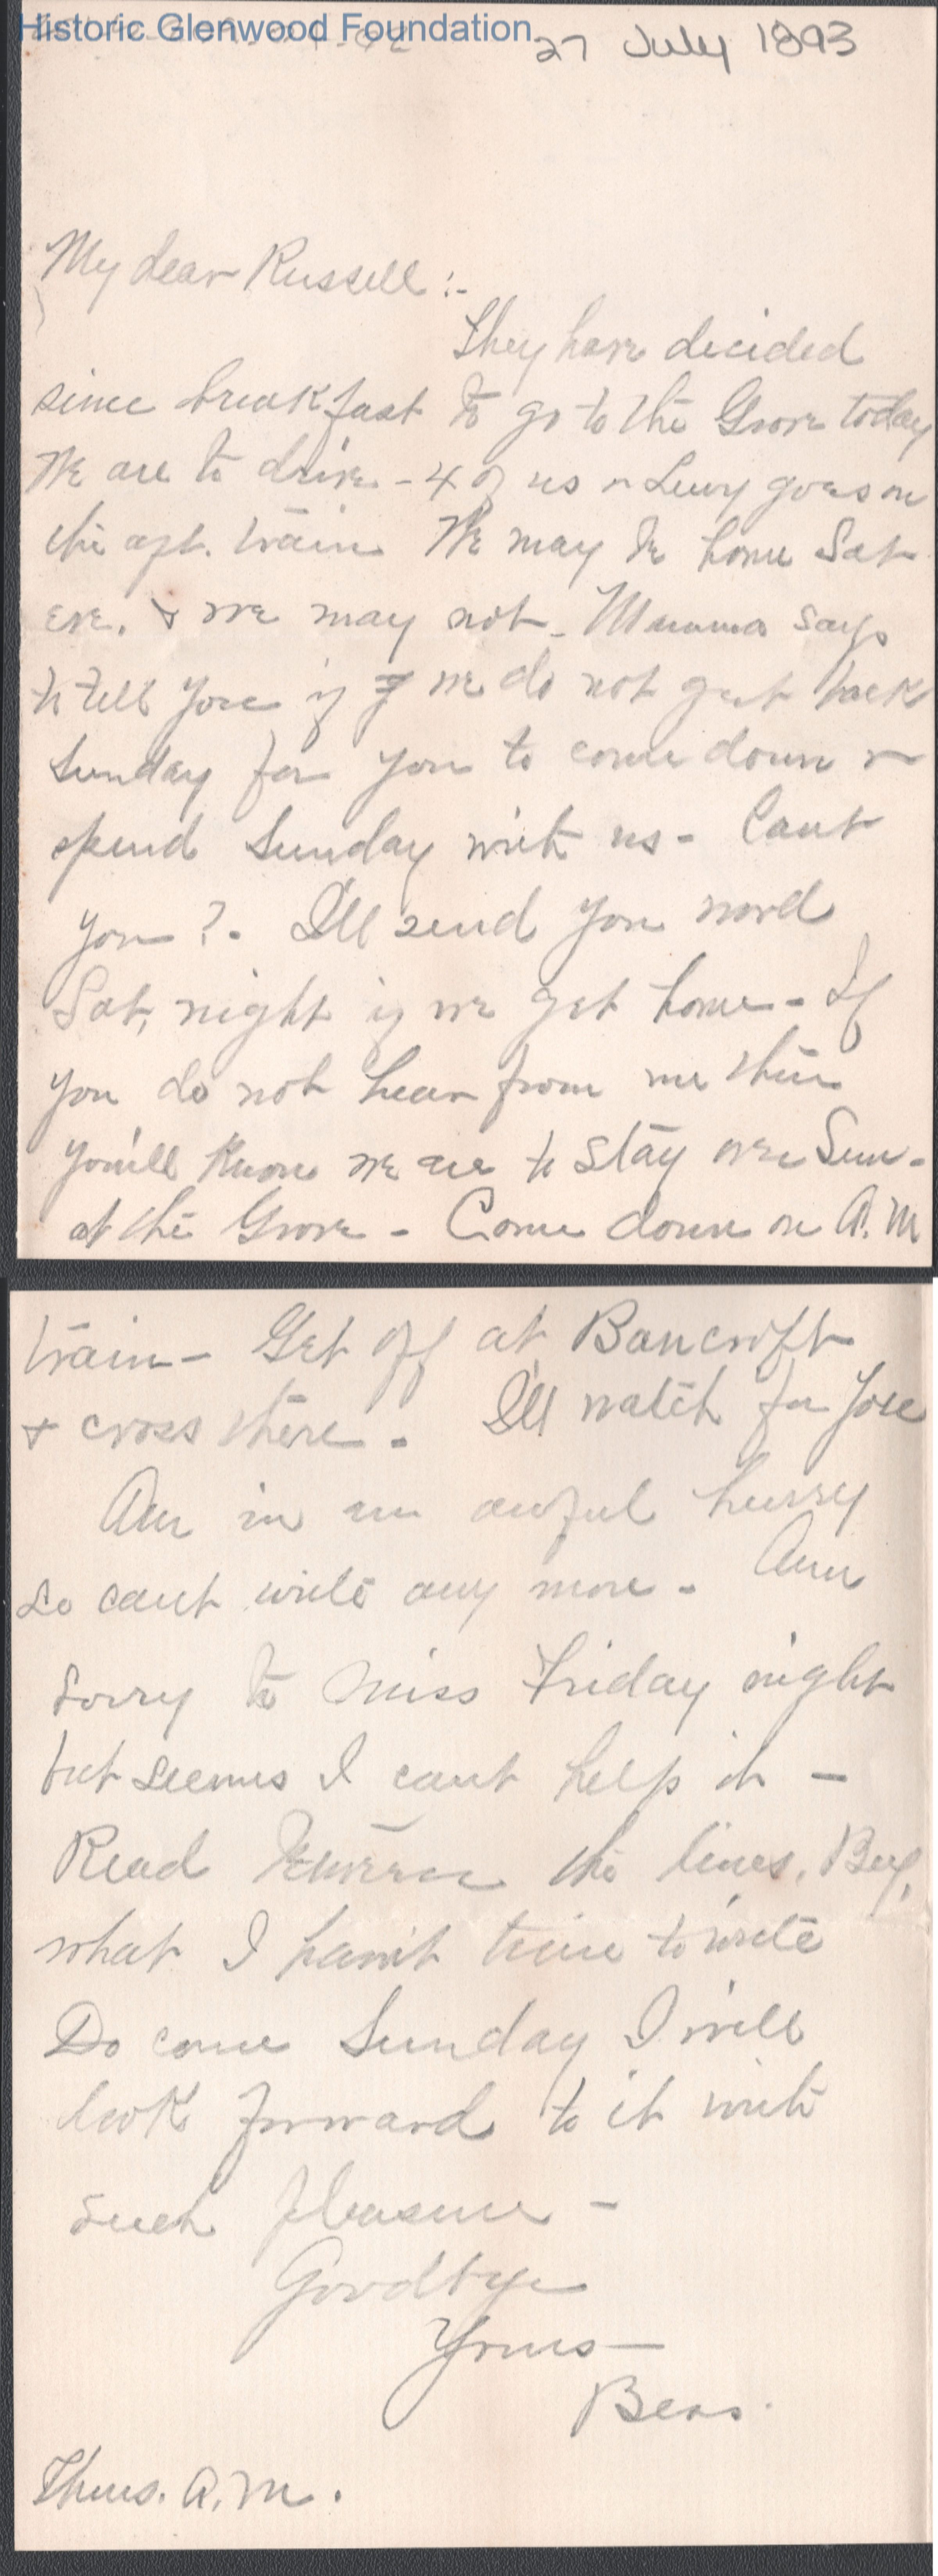 Historic Glenwood Foundation
27 July 1893
My dear Russell :-
They have decided
since breakfast to go to the Grove today
We are to drive - 4 of us & Lucy goes on
the aft. train We may be home Sat
eve. & we may not - Mamma says
to tell you if we do not get back
Sunday for you to come down &
spend Sunday with us - Cant
you ? - I'll send you word
Sat. night if we get home - If
you do not hear from me then
you'll know we are to stay over Sun -
at the Grove - Come down on A.M
train - Get off at Bancroft
& cross there - I'll watch for you
Am in an awful hurry
so cant write any more - Am
sorry to miss Friday night
but seems I cant help it -
Read between the lines, Boy,
what I havn't time to write
Do come Sunday I will
look forward to it with
such pleasure -
Goodbye
Yours -
Bess.
Thurs. A.M.